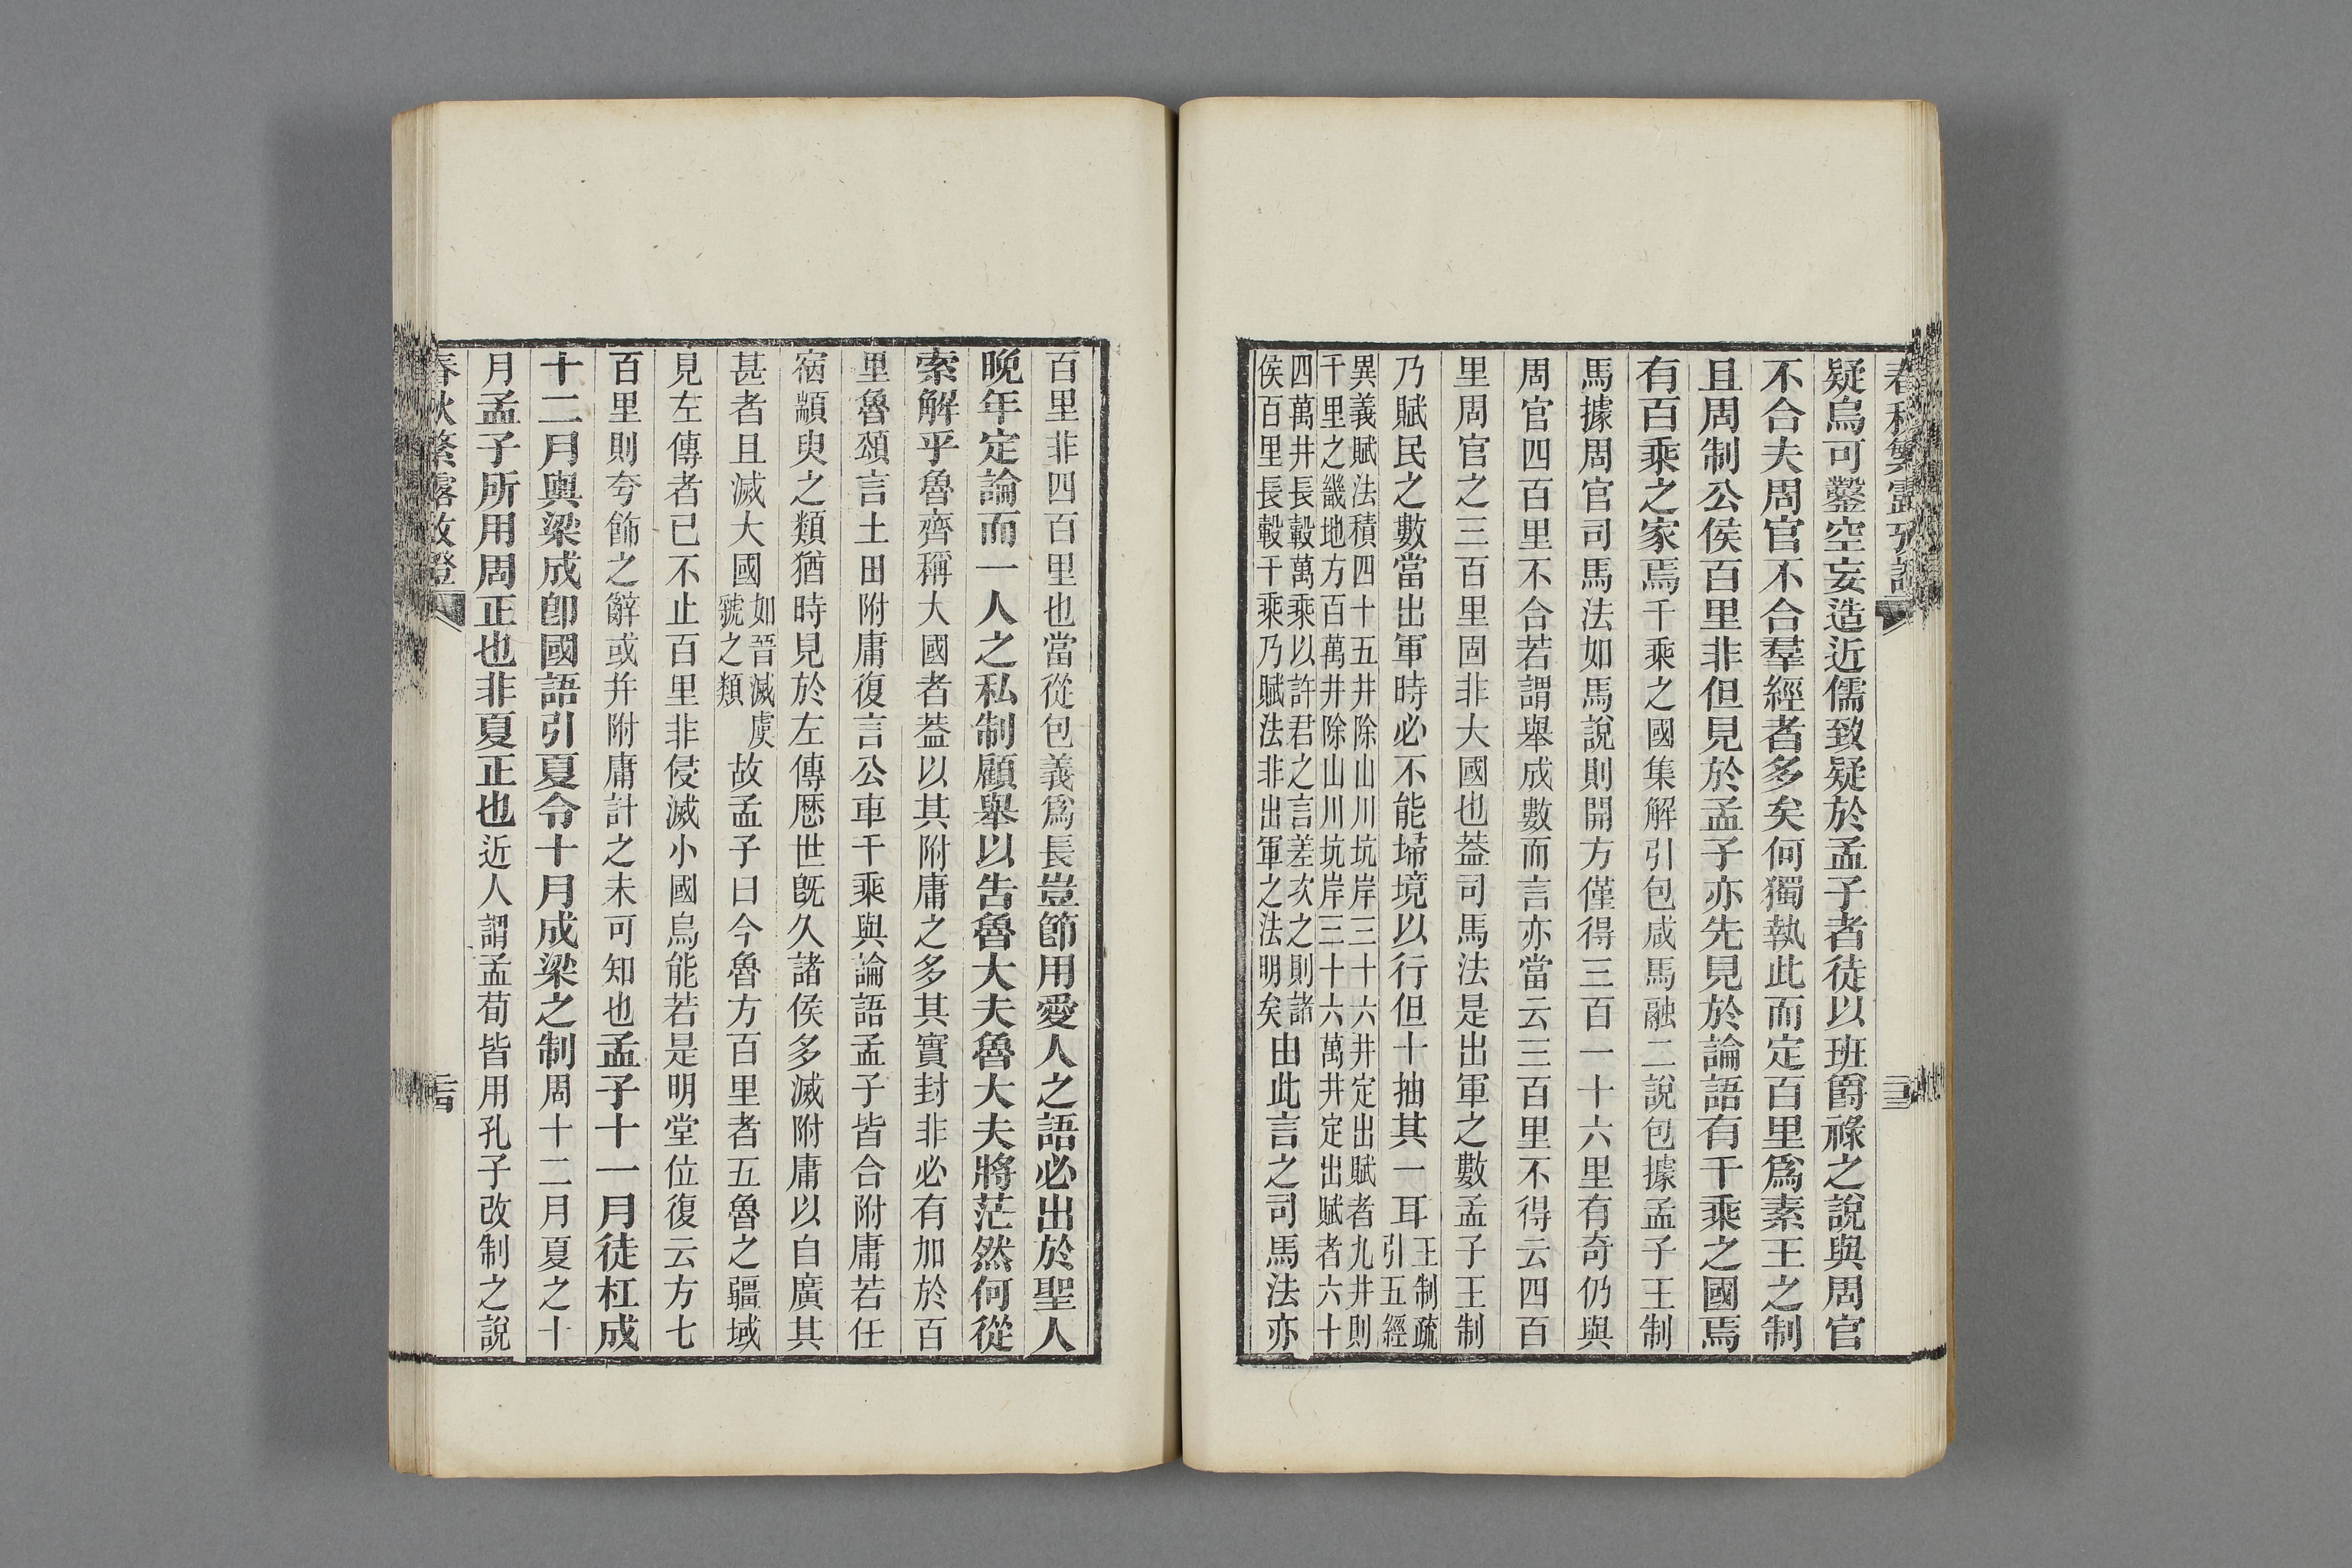 疑烏可鑿空妄造近儒致疑於孟子者徒以班爵祿之說與周官
不合夫周官不合羣經者多矣何獨執此而定百里爲素王之制
且周制公侯百里非但見於孟子亦先見於論語有千乘之國焉
有百乘之家焉千乘之國集解引包咸馬融二說包據孟子王制
馬據周官司馬法如馬說則開方僅得三百一十六里有奇仍與
周官四百里不合若謂舉成數而言亦當云三百里不得云四百
里周官之三百里固非大國也葢司馬法是出軍之數孟子王制
乃賦民之數當出軍時必不能埽境以行但十抽其一耳王制疏
引五經
異義賦法積四十五井除山川坑岸三十六井定出賦者九井則
千里之畿地方百萬井除山川坑岸三十六萬井定出賦者六十
四萬井長轂萬乘以許君之言差次之則諸
侯百里長轂千乘乃賦法非出軍之法明矣由此言之司馬法亦
百里非四百里也當從包義爲長豈節用愛人之語必出於聖人
晚年定論而一人之私制顧舉以告魯大夫魯大夫將茫然何從
索解乎魯齊稱大國者葢以其附庸之多其實封非必有加於百
里魯頌言土田附庸復言公車千乘與論語孟子皆合附庸若任
宿顓臾之類猶時見於左傳厯世旣久諸侯多滅附庸以自廣其
甚者且滅大國如晉滅虞
虢之類故孟子曰今魯方百里者五魯之疆域
見左傳者已不止百里非侵滅小國烏能若是明堂位復云方七
百里則夸飾之辭或幷附庸計之未可知也孟子十一月徒杠成
十二月輿梁成卽國語引夏令十月成梁之制周十二月夏之十
月孟子所用周正也非夏正也近人謂孟荀皆用孔子改制之說